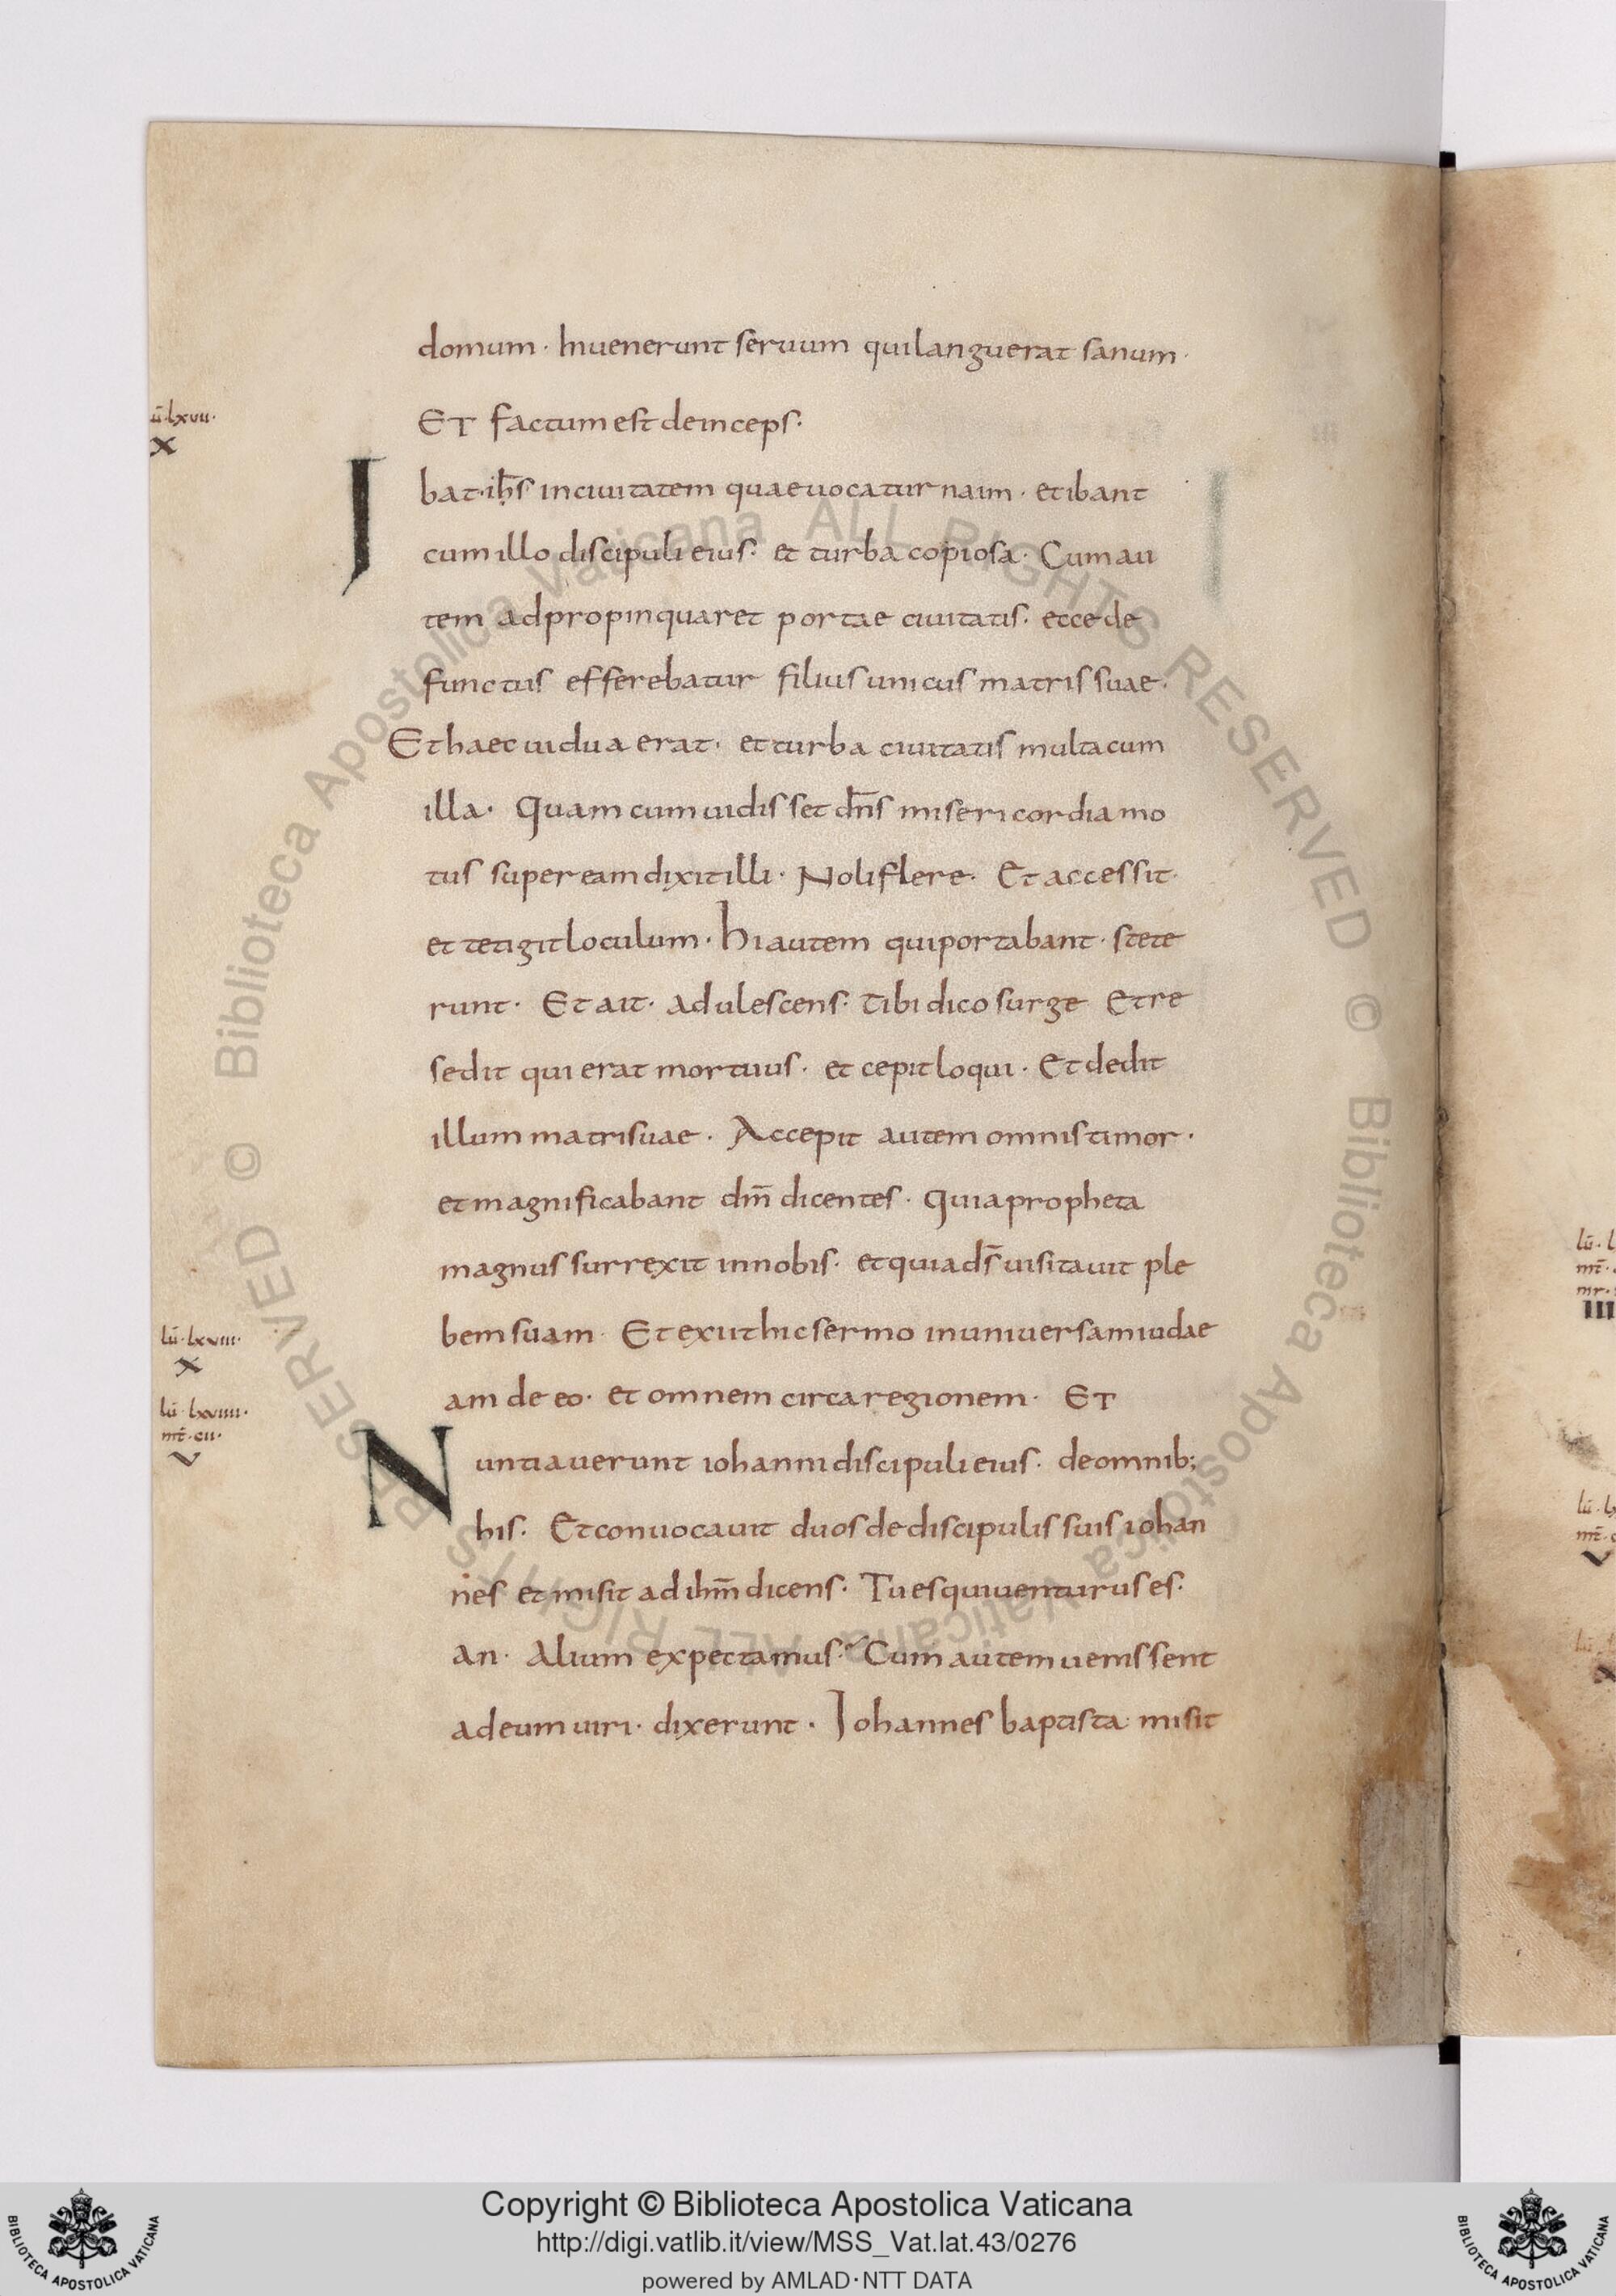 domum · Inuenerunt seruum qui languerat sanum ·
lū · lxvii ·
X
ET factum est deinceps ·
Ibat · ih̄s in ciuitatem quae uocatur naim · et ibant
cum illo discipuli eius · et turba copiosa · Cum au
tem adpropinquaret portae ciuitatis · ecce de
functus efferebatur filius unicus matris suae ·
Et haec uidua erat · et turba ciuitatis multa cum
illa · Quam cum uidisset dn̄s misericordia mo
tus super eam dixit illi · Noli flere · Et accessit ·
et tetigit loculum · hi autem qui portabant · stete
runt · Et ait · adulescens · tibi dico surge Et re
sedit qui erat mortuus · et cepit loqui · Et dedit
illum matri suae · Accepit autem omnis timor ·
et magnificabant dm̄ dicentes · Quia propheta
magnus surrexit in nobis · et quia ds̄ uisitauit ple
lū · lxviii ·
X
bem suam · Et exiit hic sermo in uniuersam iudae
am de eo · et omnem circa regionem · ET
lū · lxviiii ·
mt̄ · cii ·
V
Nuntiauerunt iohanni discipuli eius · de omnib;
his · Et conuocauit duos de discipulis suis iohan
nes et misit ad ihm̄ dicens · Tu es qui uenturus es ·
an · alium expectamus · Cum autem uenissent
ad eum uiri · dixerunt · Iohannes baptista misit
Copyright © Biblioteca Apostolica Vaticana
http://digi.vatlib.it/view/MSS_Vat.lat.43/0276
powered by AMLAD · NTT DATA
BIBLIOTECA APOSTOLICA VATICANA
BIBLIOTECA APOSTOLICA VATICANA
© Biblioteca Apostolica Vaticana ALL RIGHTS RESERVED
© Biblioteca Apostolica Vaticana ALL RIGHTS RESERVED